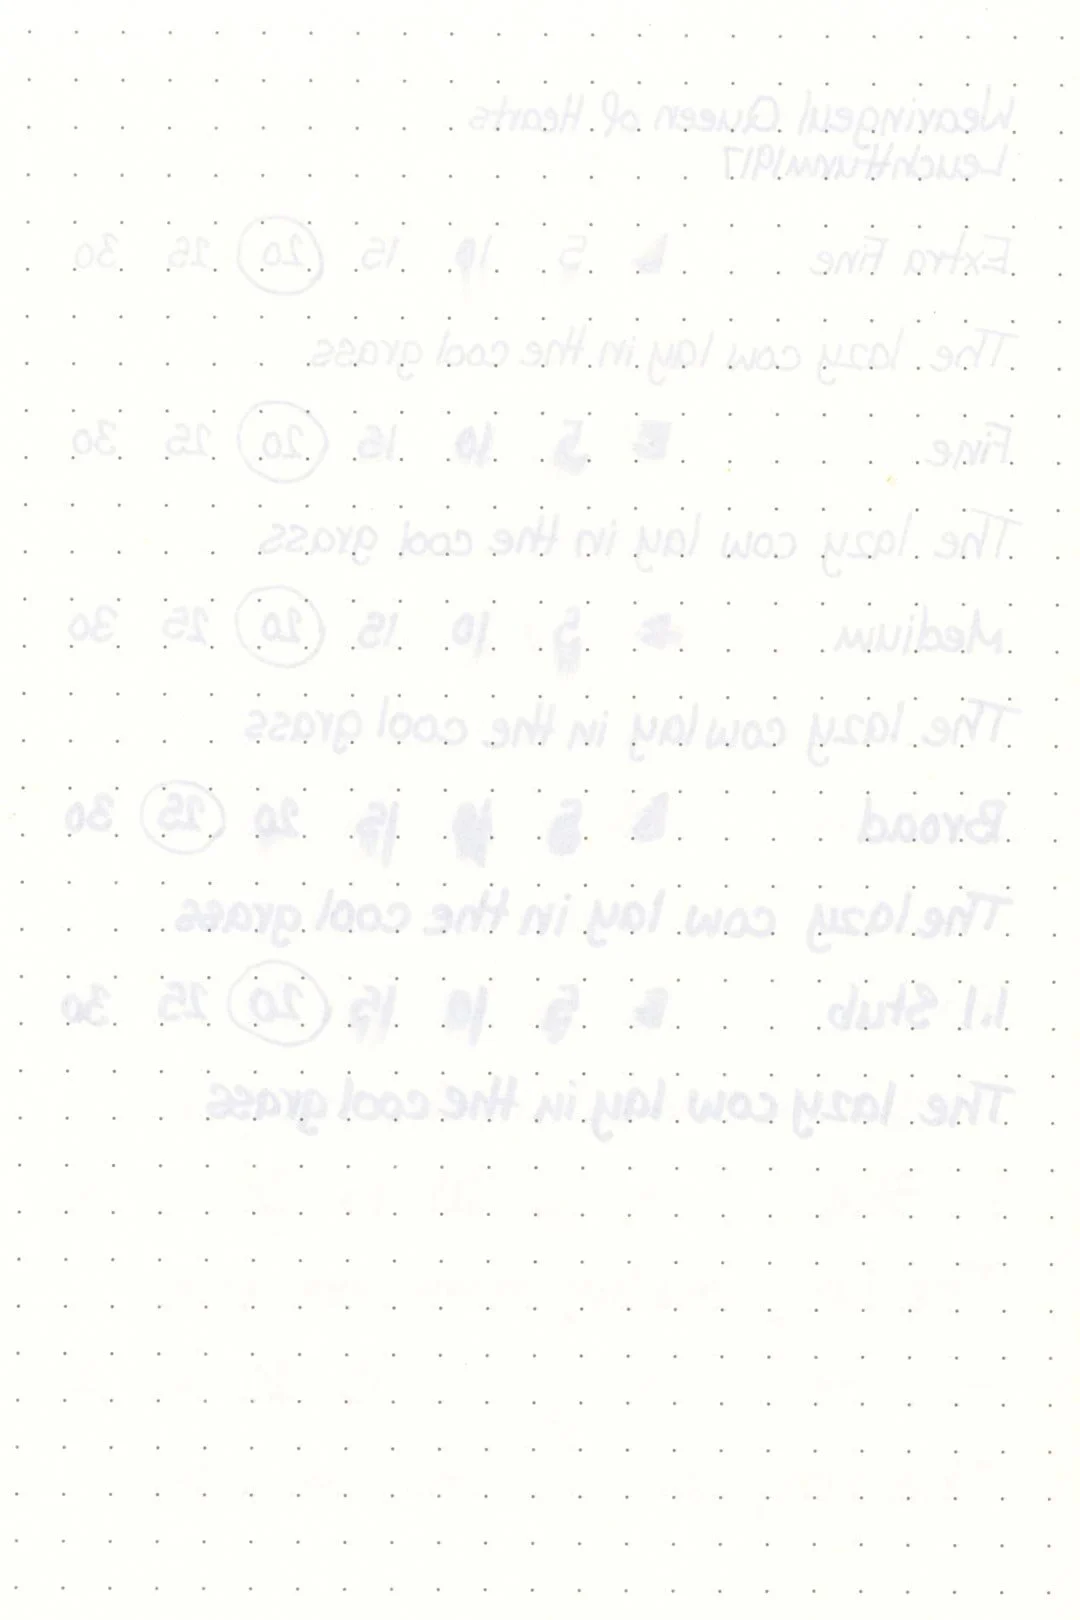 Weavingeul Queen of Hearts
Leuchtturm1917
Extra Fine 5 10 15 20 25 30
The lazy cow lay in the cool grass
Fine 5 10 15 20 25 30
The lazy cow lay in the cool grass
Medium 5 10 15 20 25 30
The lazy cow lay in the cool grass
Broad 5 10 15 20 25 30
The lazy cow lay in the cool grass
1.1 Stub 5 10 15 20 25 30
The lazy cow lay in the cool grass